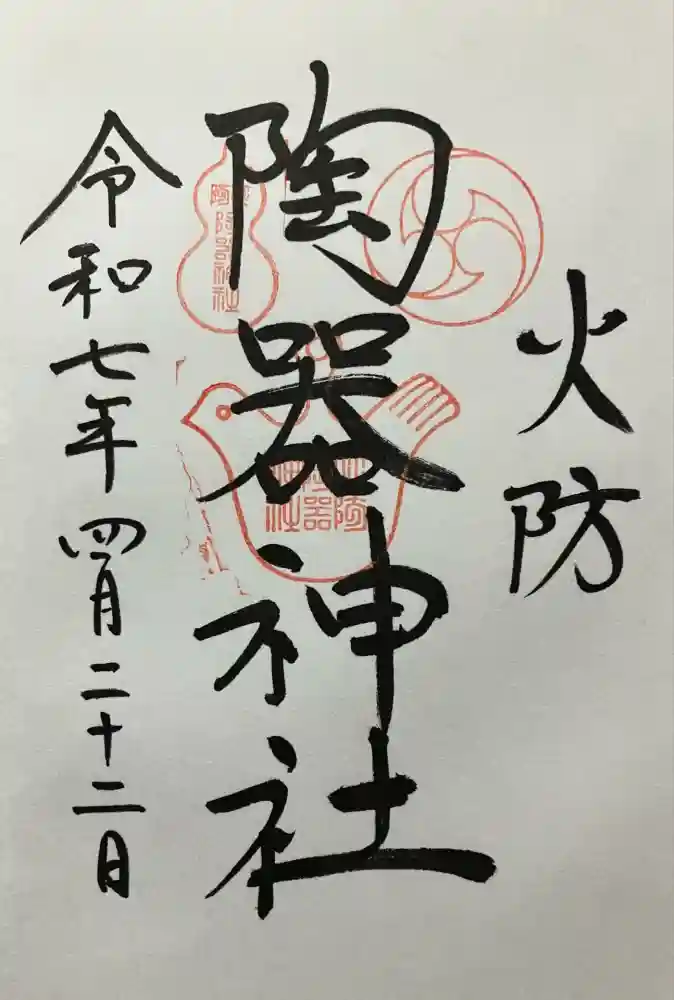 火防
陶器神社
令和七年四月二十二日
陶器神社